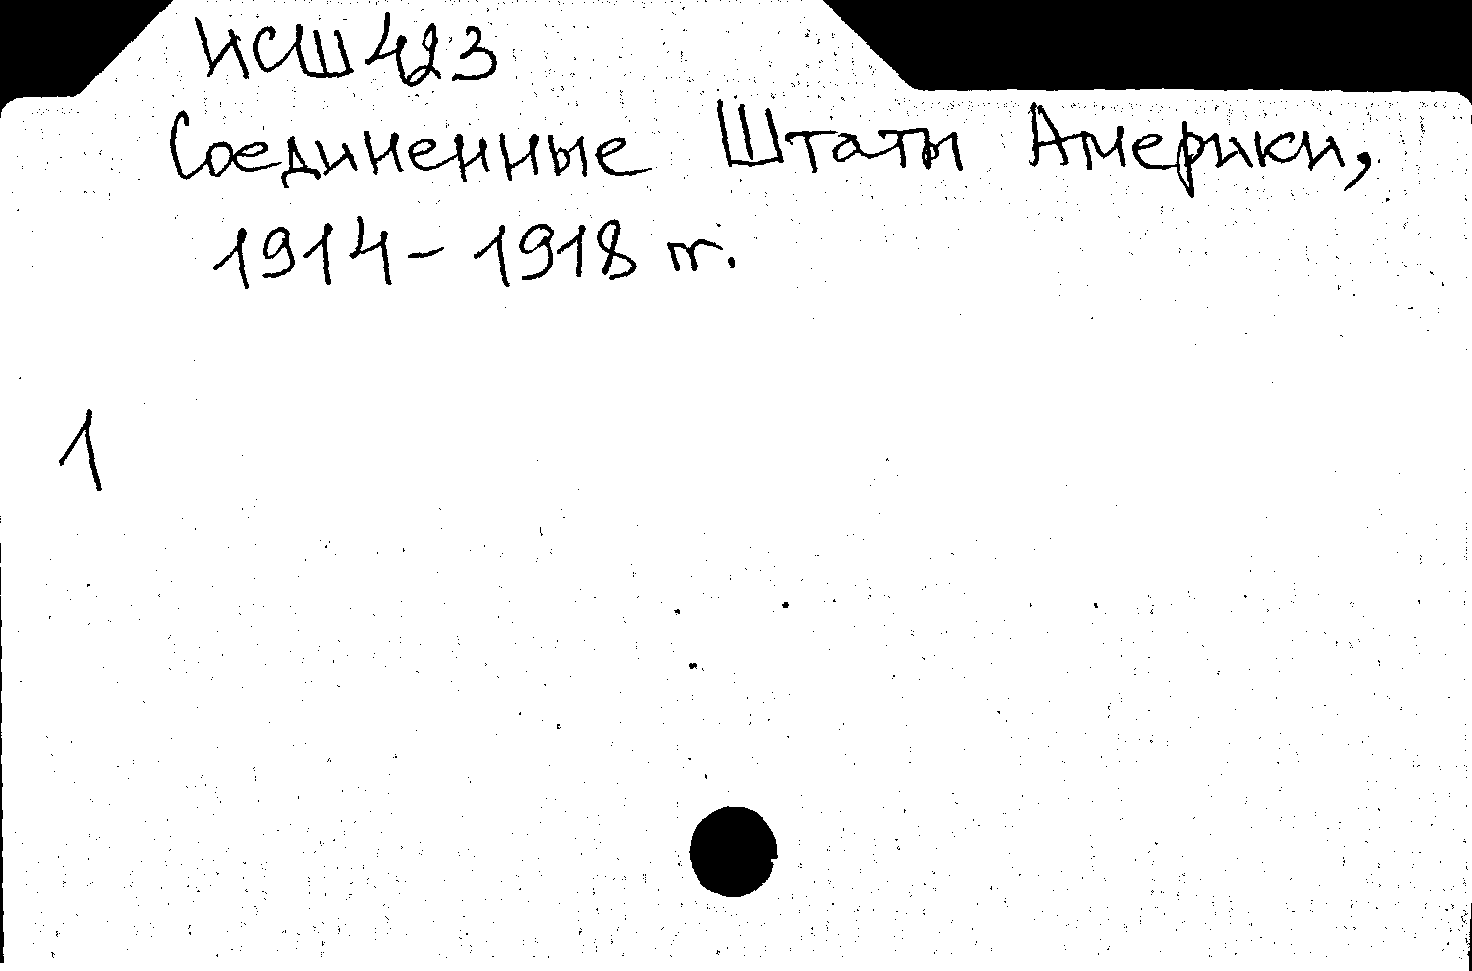 ИСШ 423
Соединенные Штаты Америки,
1914-1918 гг.
1